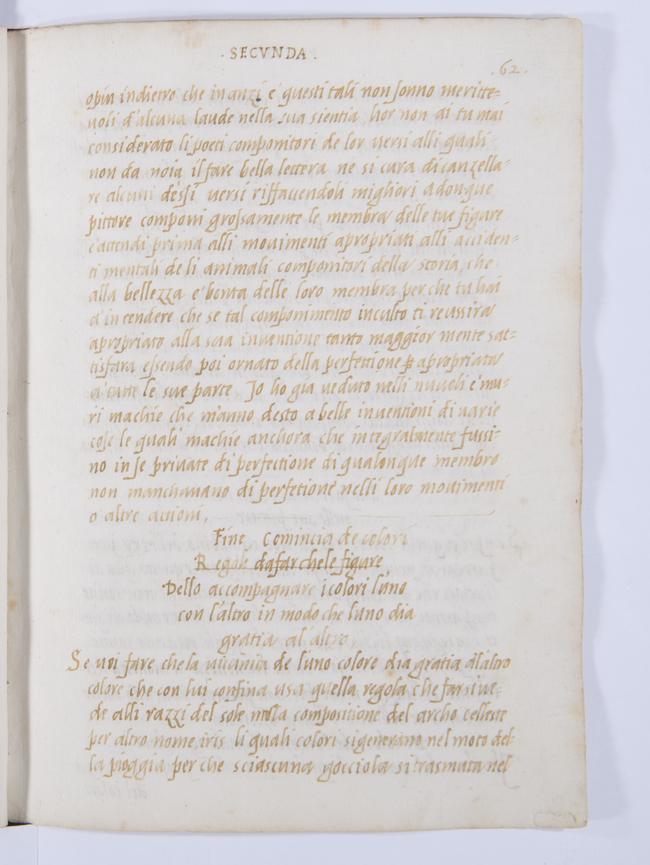 . SECVNDA .
. 62 .
opin indietro che inanzi e questi tali non sonno meritte=
uoli d'alcuna laude nella sua sientia hor non ai tu mai
considerato li poeti componitori de lor uersi alli quali
non da noia il fare bella lettera ne si cura di canzella=
re alcuni dessi uersi riffaccendoli migliori adonque
pittore componi grossamente le membra delle tue figure
e attendi prima alli mouimenti apropriati alli acciden=
ti mentali de li animali componitori della storia, che
alla bellezza e bonta delle loro membra per che tu hai
a intendere che se tal componimento inculto ti reussira
apropriato alla sua inuentione tanto maggior mente sat=
tisfara essendo poi ornato della perfettione apropriata
a tutte le sue parte. Jo ho gia ueduto nelli nuuoli e mu=
ri machie che m'anno desto a belle inuentioni di uarie
cose le quali machie anchora che integralmente fussi=
no in se priuate di perfectione di qualonque membro
non manchauano di perfetione nelli loro mouimenti
o altre actioni.
Fine comincia de colori
Regole dafarchele figure
Dello accompagnare i colori l'uno
con l'altro in modo che l'uno dia
gratia al altro.
Se uoi fare che la uicinita de l'uno colore dia gratia all'altro
colore che con lui confina usa quella regola che far si ue=
de alli razzi del sole nella compositione del archo celleste
per altro nome iris li quali colori si generano nel moto del=
la pioggia per che sciascuna gocciola si trasmuta nel